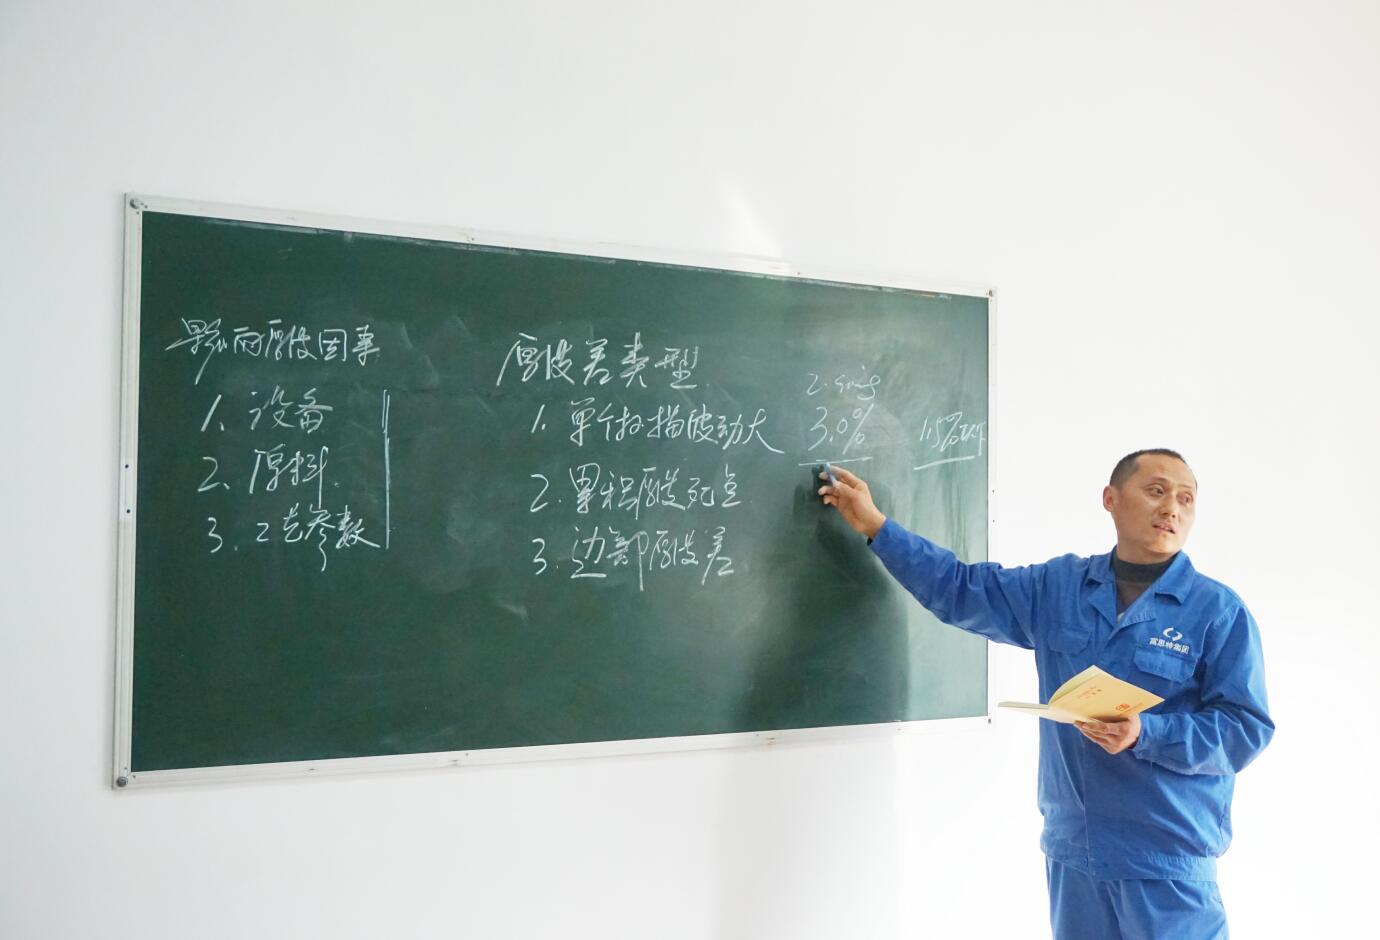 影响厚度因素
1. 设备
2. 原料
3. 工艺参数
厚度差类型
1. 单个扫描波动大
2. 累积厚度死点
3. 边部厚度差
3.0%
1.5%以下
富思特集团